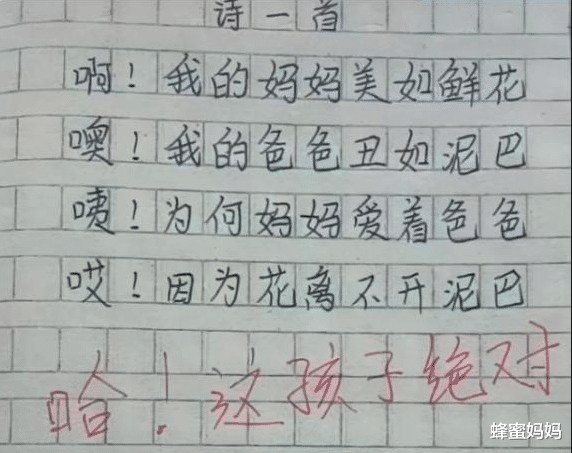 诗一首
啊！我的妈妈美如鲜花
噢！我的爸爸丑如泥巴
咦！为何妈妈爱着爸爸
哎！因为花离不开泥巴
哈！这孩子绝对
蜂蜜妈妈